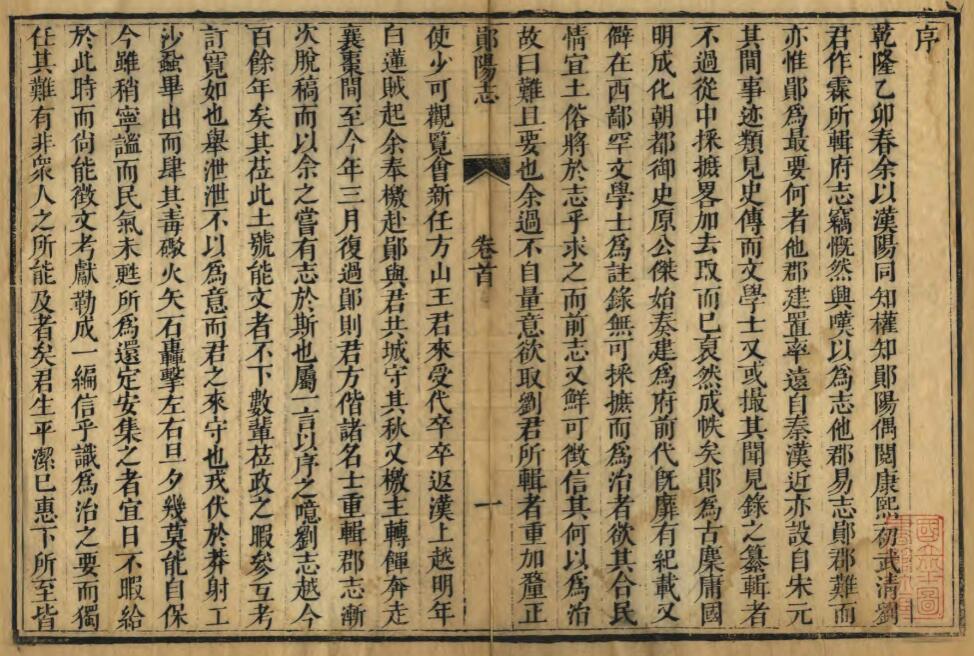 序
乾隆乙卯春余以漢陽同知權知鄖陽偶閱康熙初武清劉
君作霖所輯府志竊慨然興嘆以為志他郡易志鄖郡難而
亦惟鄖為最要何者他郡建置率遠自秦漢近亦設自宋元
其間事迹類見史傳而文學士又或撮其聞見錄之纂輯者
不過從中採摭畧加去取而已裒然成帙矣鄖為古麇庸國
明成化朝都御史原公傑始奏建為府前代旣靡有紀載又
僻在西鄙罕文學士為註錄無可採摭而為治者欲其合民
情宜土俗將於志乎求之而前志又鮮可徵信其何以為治
故曰難且要也余過不自量意欲取劉君所輯者重加釐正
鄖陽志 卷首 一
使少可觀覽會新任方山王君來受代卒卒返漢上越明年
白蓮賊起余奉檄赴鄖與君共城守其秋又檄主轉餫奔走
襄棗間至今年三月復過鄖則君方偕諸名士重輯郡志漸
次脫稿而以余之嘗有志於斯也屬一言以序之噫劉志越今
百餘年矣其莅此土號能文者不下數輩莅政之暇參互考
訂寛如也舉泄泄不以為意而君之來守也戎伏於莽射工
沙蝨畢出而肆其毒礮火矢石轟擊左右旦夕幾莫能自保
今雖稍寧謐而民氣未甦所為還定安集之者宜日不暇給
於此時而尙能徵文考獻勒成一編信乎識為治之要而獨
任其難有非衆人之所能及者矣君生平潔已惠下所至皆